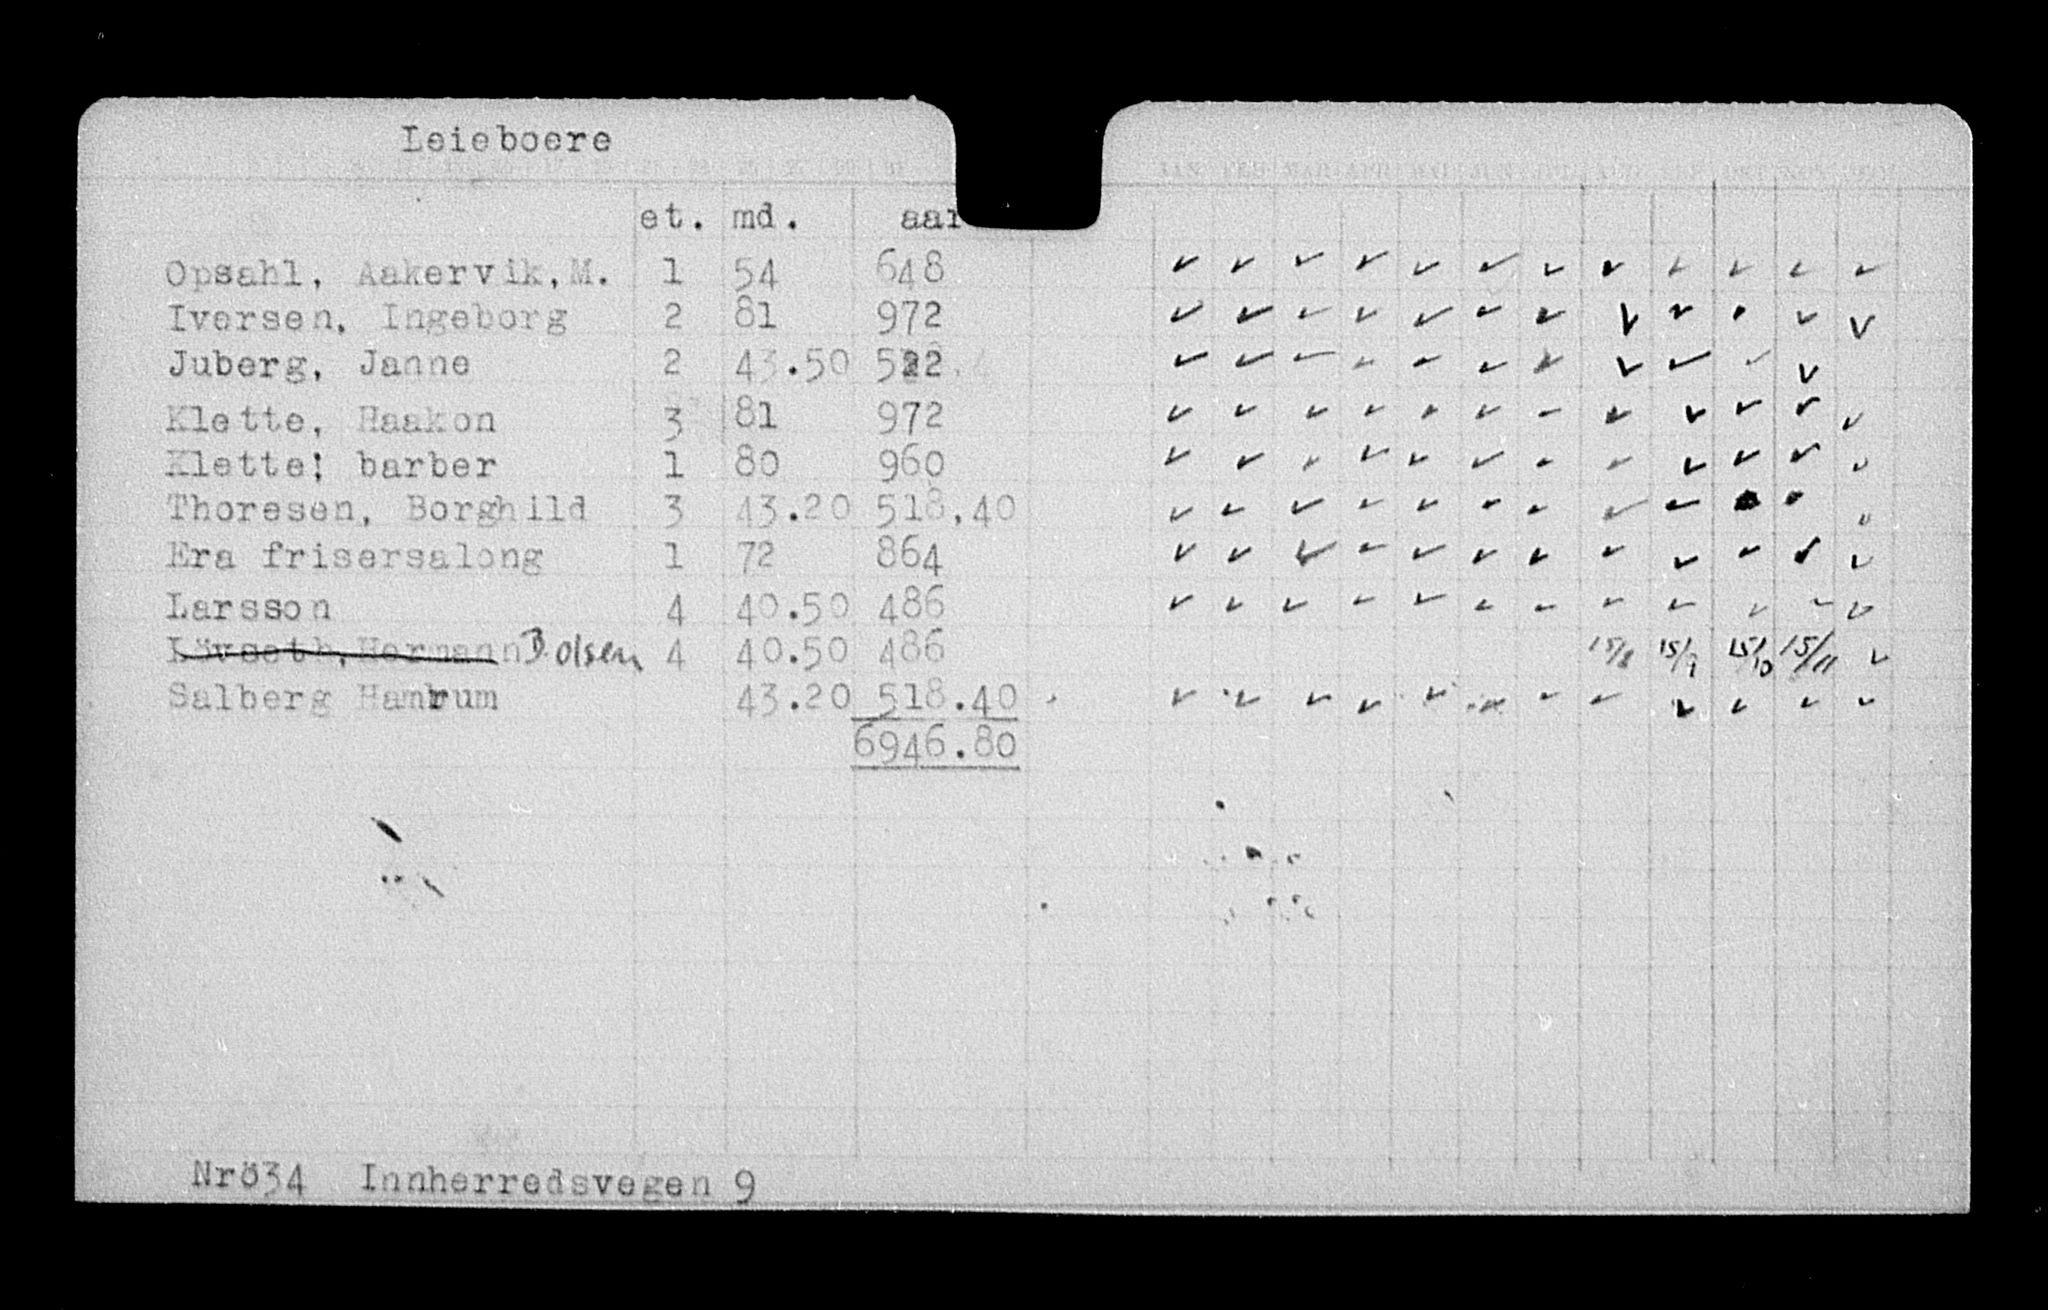 Leieboere
JAN FEB MAR APR MAI JUN JUL AUG SEP OKT NOV DES
et. md. aar
Opsahl, Aakervik,M. 1 54 648
Iversen, Ingeborg 2 81 972
Juberg, Janne 2 43.50 522
Klette, Haakon 3 81 972
Klette; barber 1 80 960
Thoresen, Borghild 3 43.20 518,40
Era frisersalong 1 72 864
Larsson 4 40.50 486
Lövseth, Hermann B olsen 4 40.50 486 15/8 15/9 15/10 15/11
Salberg Hamrum 43.20 518.40
6946.80
Nrö34 Innherredsvegen 9